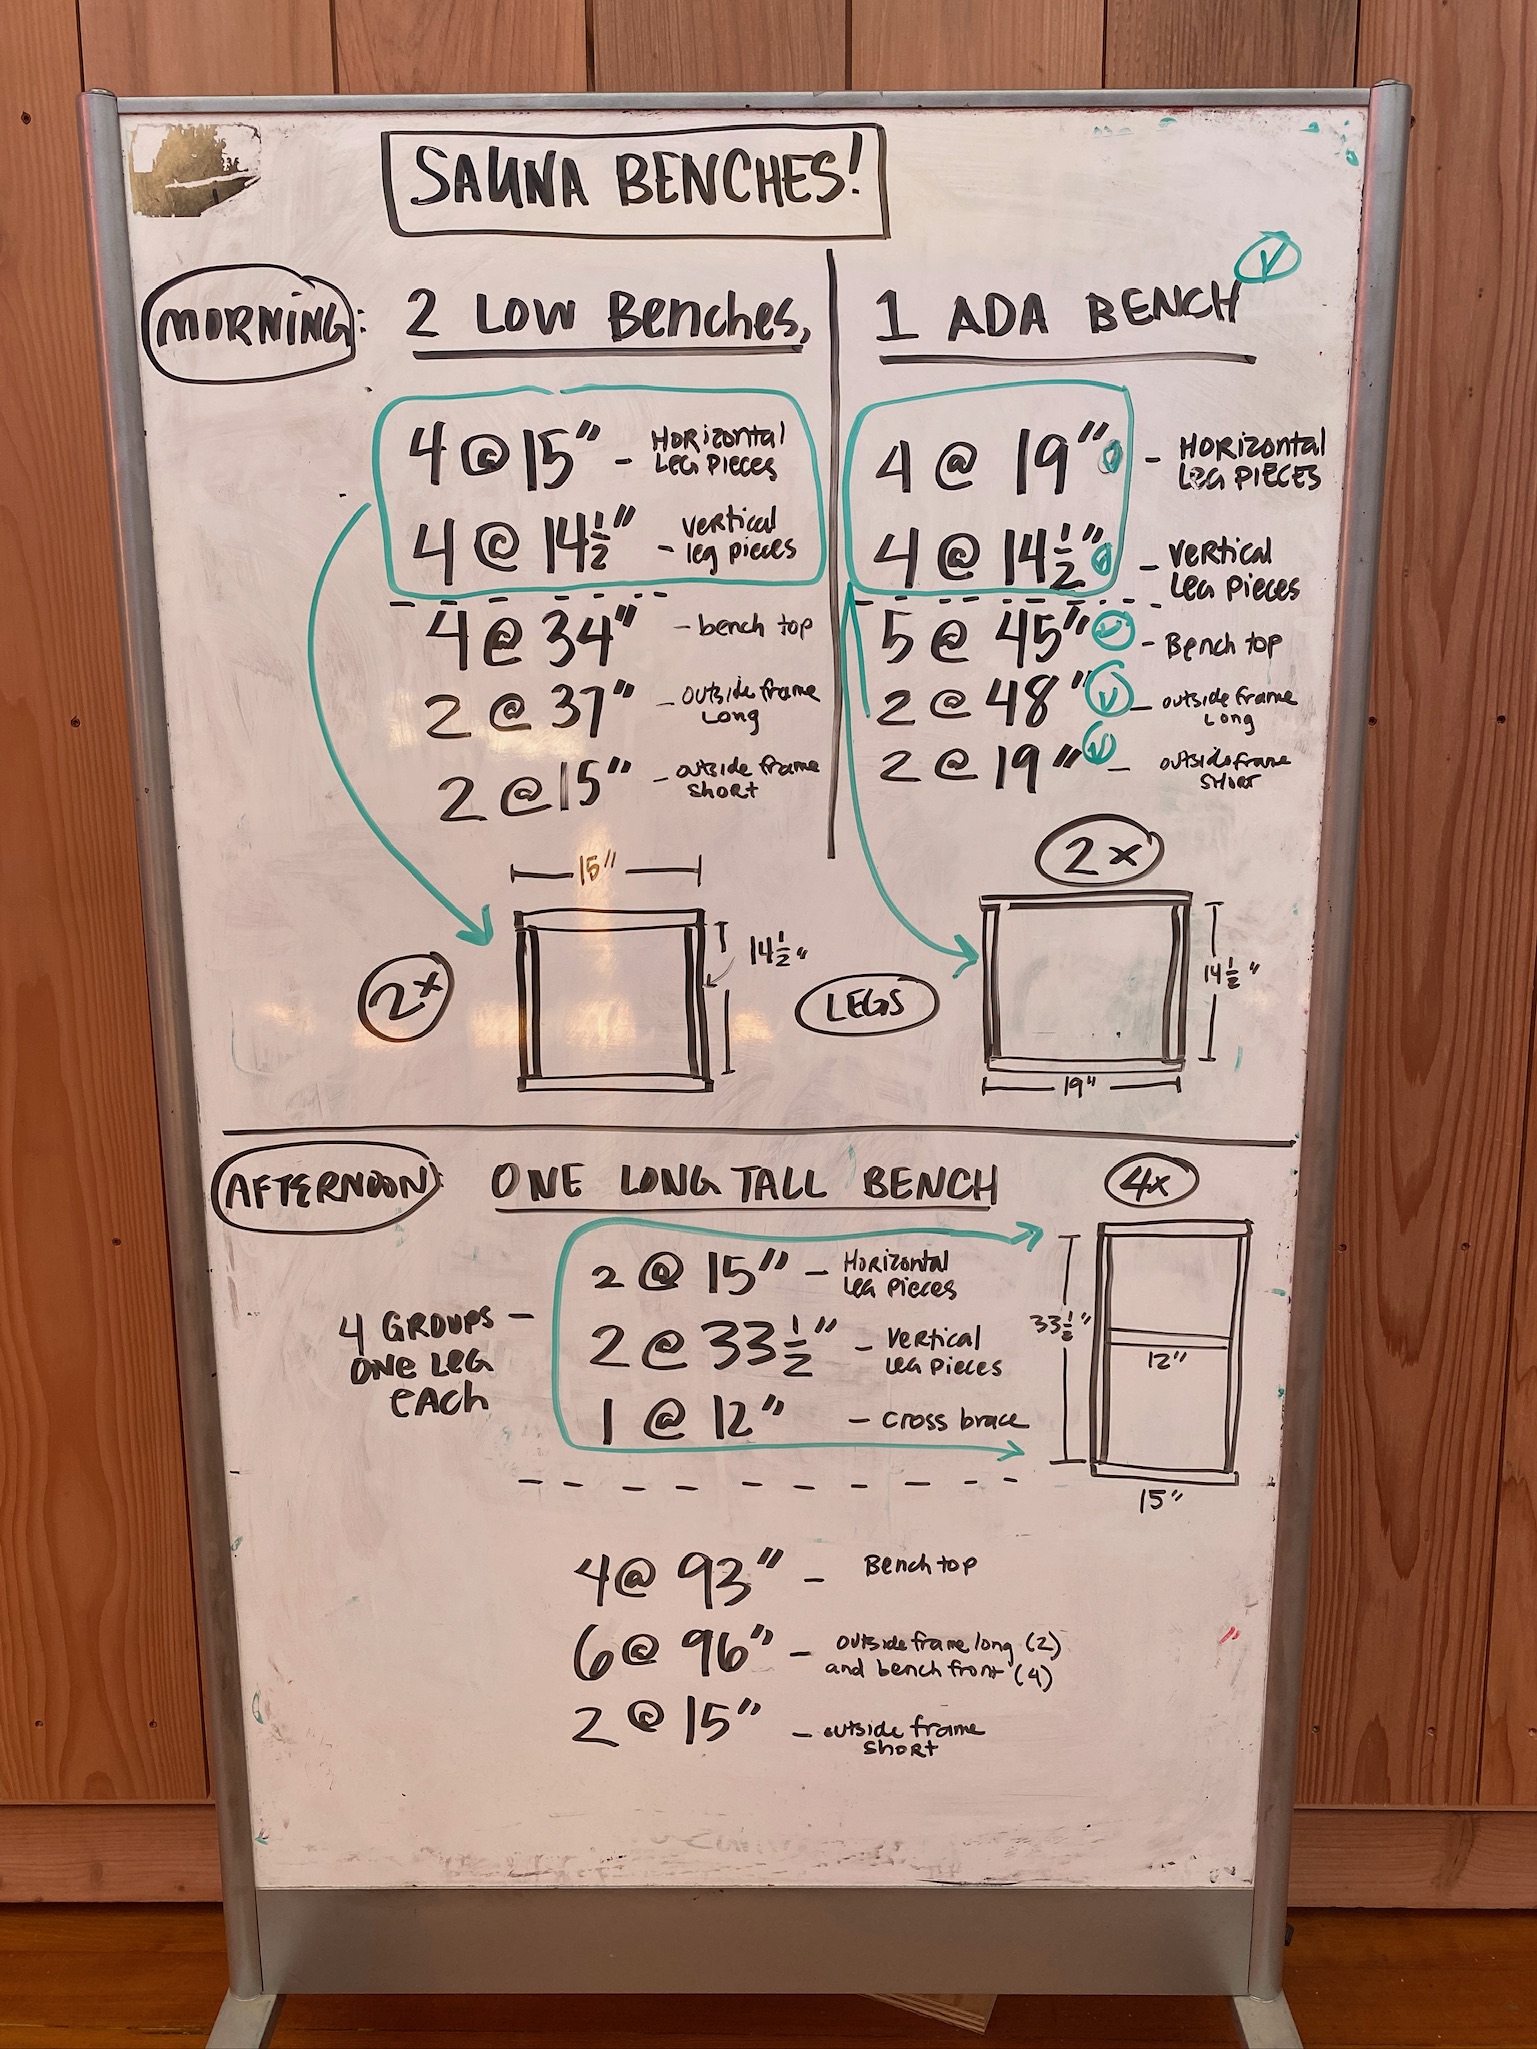 SAUNA BENCHES!
MORNING:
2 LOW Benches,
4 @ 15" - HORizontal
Leg Pieces
4 @ 14 1/2" - vertical
leg pieces
4 @ 34" - bench top
2 @ 37" - outside frame
Long
2 @ 15" - outside frame
short
15"
2x
14 1/2"
1 ADA BENCH
4 @ 19" - HORizontal
Leg PIECES
4 @ 14 1/2" - Vertical
Leg Pieces
5 @ 45" - Bench top
2 @ 48" - outside frame
Long
2 @ 19" - outside frame
SHORT
2x
14 1/2"
LEGS
19"
AFTERNOON:
ONE LONG TALL BENCH
4 GROUPS -
ONE LEG
EACH
2 @ 15" - Horizontal
Leg Pieces
2 @ 33 1/2" - Vertical
Leg Pieces
1 @ 12" - cross brace
4x
33 1/2"
12"
15"
4 @ 93" - Bench top
6 @ 96" - outside frame long (2)
and bench front (4)
2 @ 15" - outside frame
short